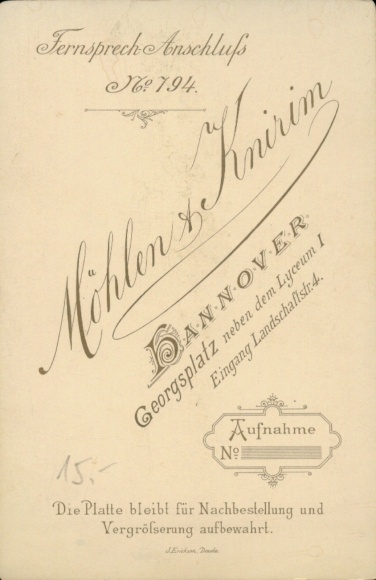 Fernsprech-Anschluſs
No 794.
Möhlen & Knirim
HANNOVER
Georgsplatz neben dem Lyceum 1
Eingang Landschaftstr. 4.
Aufnahme
No
15.-
Die Platte bleibt für Nachbestellung und
Vergröſserung aufbewahrt.